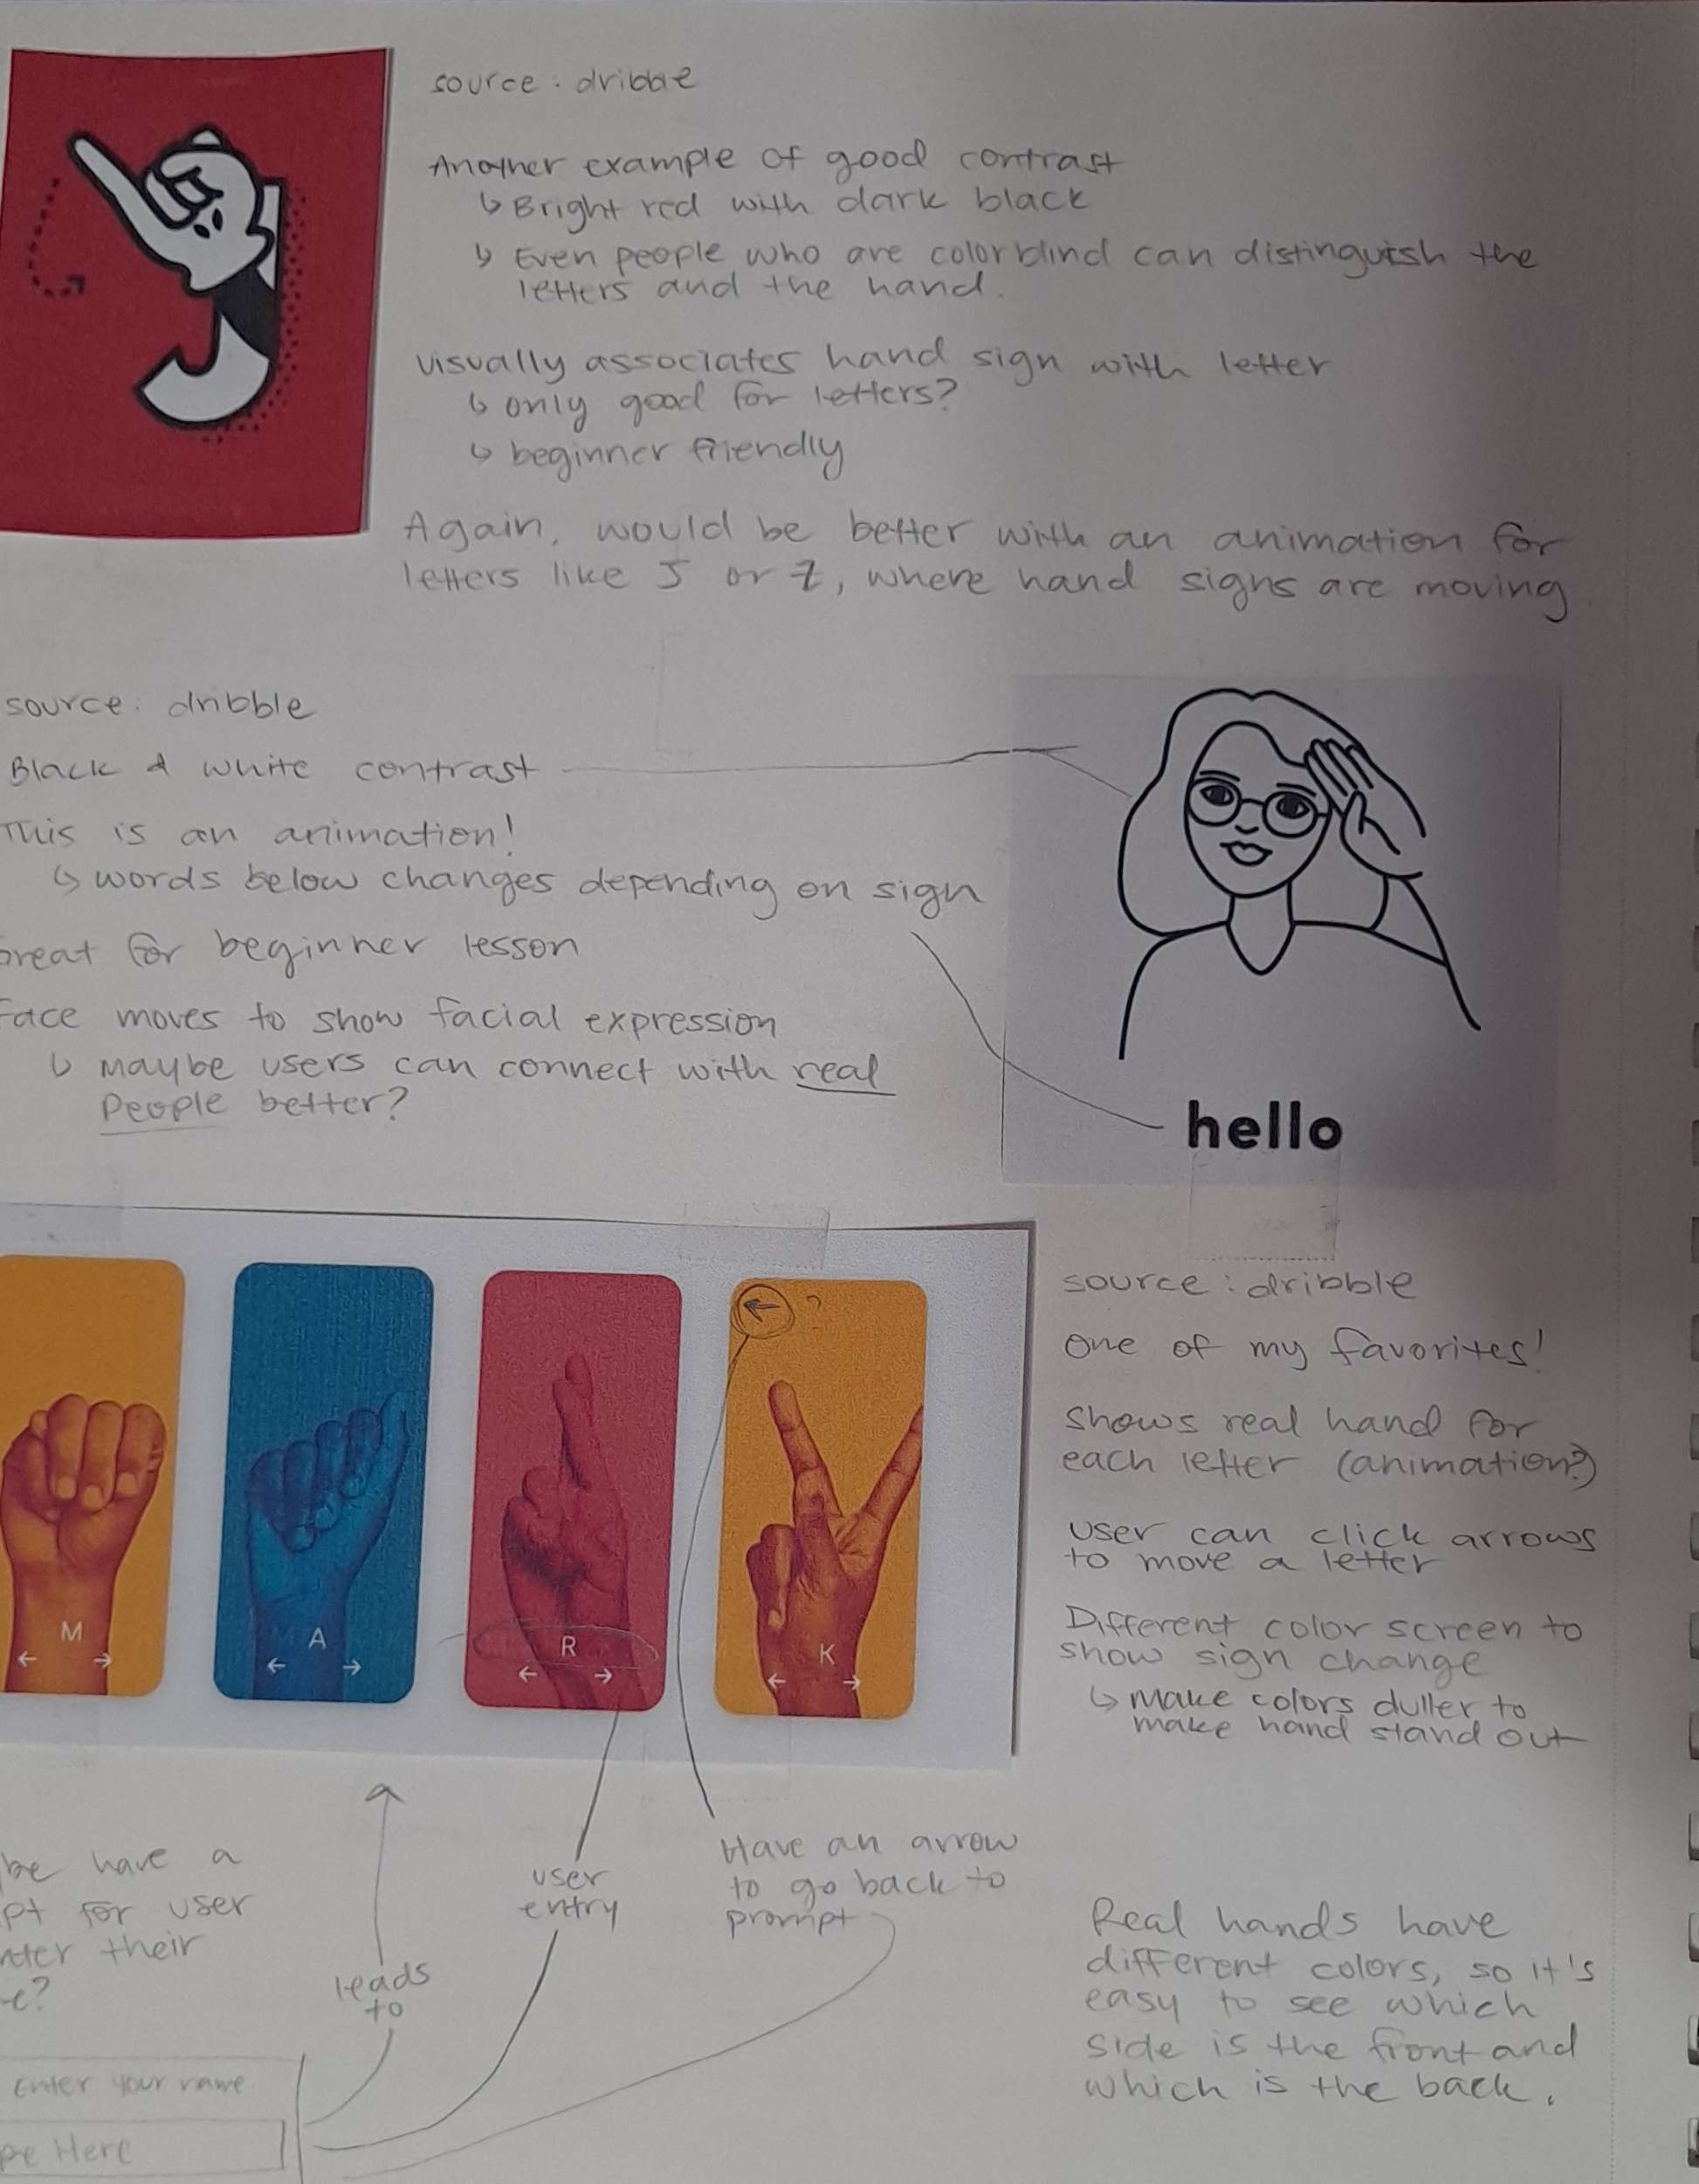 source: dribble
Another example of good contrast
↳ Bright red with dark black
↳ Even people who are colorblind can distinguish the
letters and the hand.
visually associates hand sign with letter
↳ only good for letters?
↳ beginner friendly
Again, would be better with an animation for
letters like J or Z, where hand signs are moving
source: dribble
Black & white contrast
This is an animation!
↳ words below changes depending on sign
Great for beginner lesson
Face moves to show facial expression
↳ maybe users can connect with real
people better?
hello
source: dribble
one of my favorites!
shows real hand for
each letter (animation?)
user can click arrows
to move a letter
Different color screen to
show sign change
↳ make colors duller to
make hand stand out
← ?
M
← →
A
← →
R
← →
K
← →
be have a
pt for user
nter their
e?
leads
to
user
entry
Have an arrow
to go back to
prompt
Real hands have
different colors, so it's
easy to see which
side is the front and
which is the back.
Enter your name
pe Here